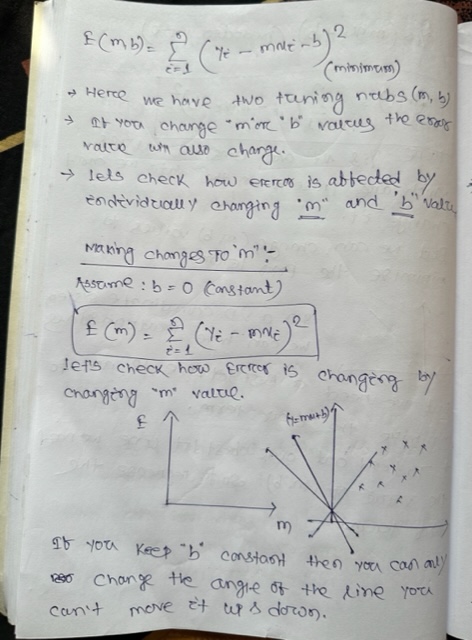 E(mb) = Σ (yi - mxi - b)²
n
i=1
(minimum)
→ Here we have two tuning nubs (m, b)
→ If you change "m" or "b" values the error
value will also change.
→ lets check how error is affected by
individually changing "m" and "b" value
Making changes To "m" :-
Assume : b = 0 (constant)
E(m) = Σ (yi - mxi)²
n
i=1
let's check how Error is changing by
changing "m" value.
E
(y=mx+b)
m
If you keep "b" constant then you can only
change the angle of the line you
can't move it up & down.